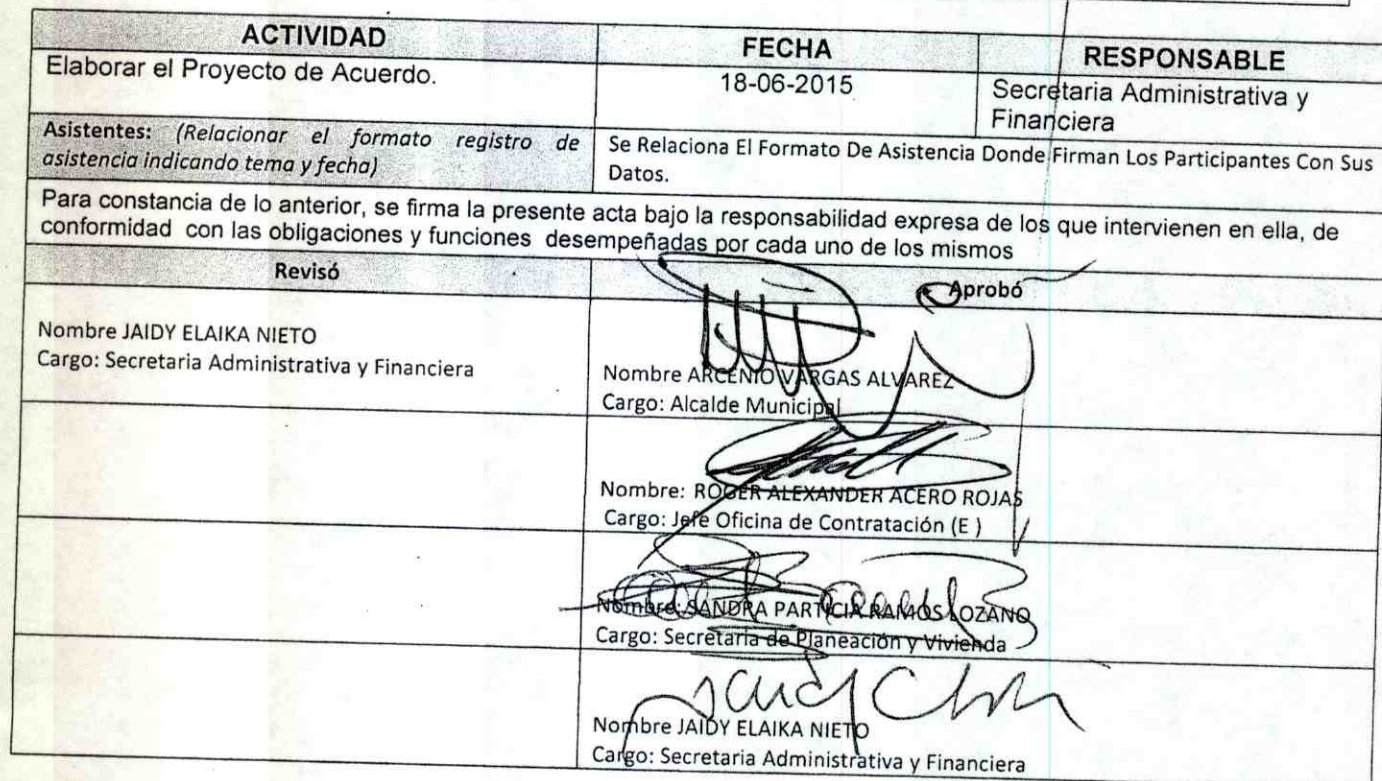 ACTIVIDAD
FECHA
RESPONSABLE
Elaborar el Proyecto de Acuerdo.
18-06-2015
Secretaria Administrativa y
Financiera
Asistentes: (Relacionar el formato registro de
asistencia indicando tema y fecha)
Se Relaciona El Formato De Asistencia Donde Firman Los Participantes Con Sus
Datos.
Para constancia de lo anterior, se firma la presente acta bajo la responsabilidad expresa de los que intervienen en ella, de
conformidad con las obligaciones y funciones desempeñadas por cada uno de los mismos
Revisó
Aprobó
Nombre JAIDY ELAIKA NIETO
Cargo: Secretaria Administrativa y Financiera
Nombre ARCENIO VARGAS ALVAREZ
Cargo: Alcalde Municipal
Nombre: ROGER ALEXANDER ACERO ROJAS
Cargo: Jefe Oficina de Contratación (E )
Nombre: SANDRA PARTICIA RAMOS LOZANO
Cargo: Secretaria de Planeación y Vivienda
Nombre JAIDY ELAIKA NIETO
Cargo: Secretaria Administrativa y Financiera